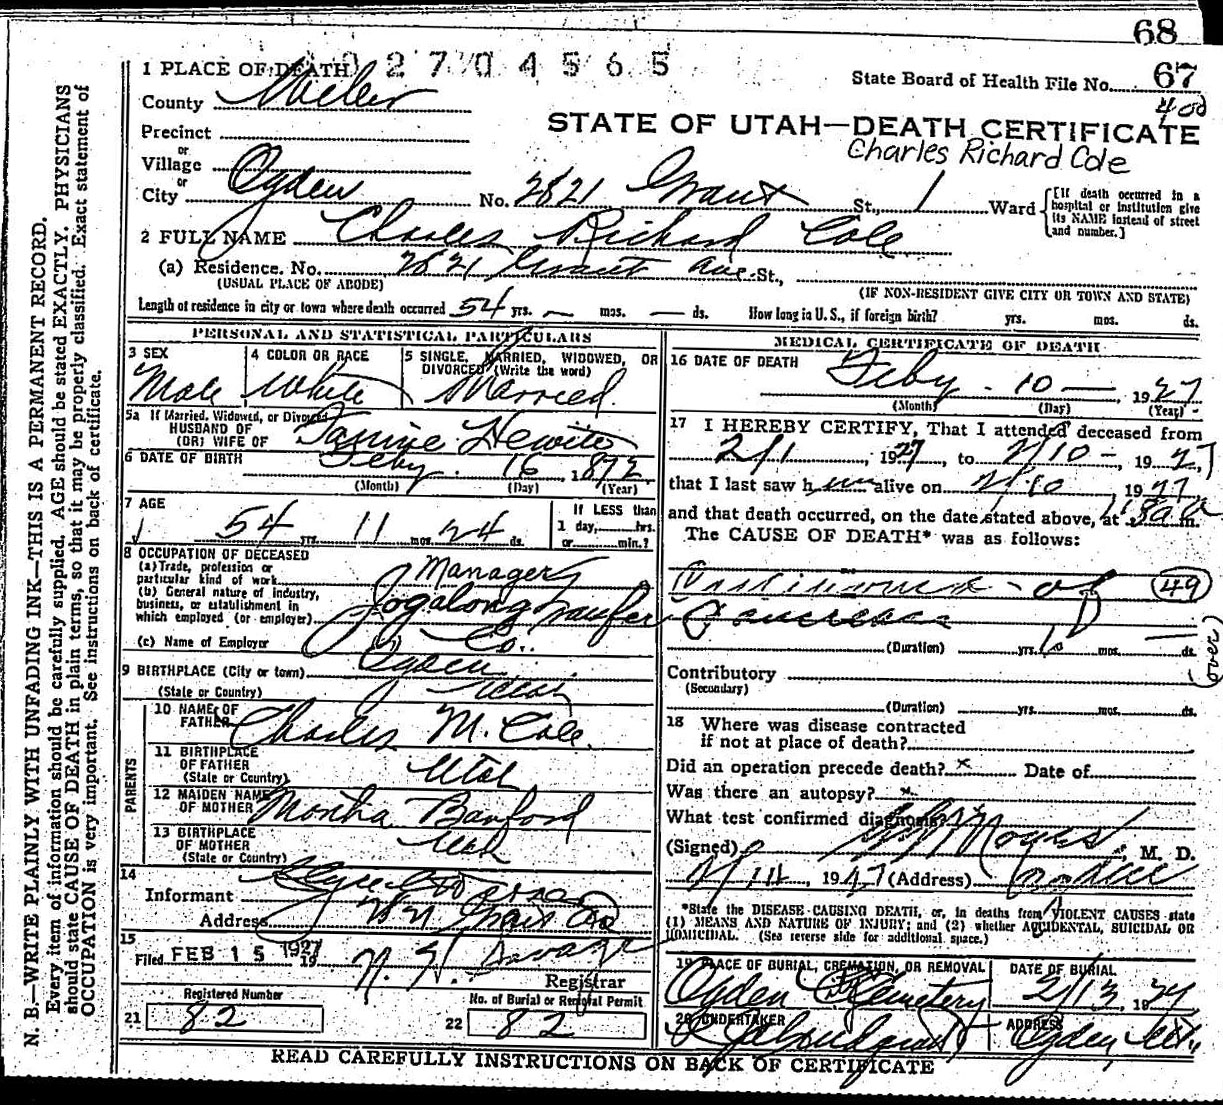 68
27 0 4 5 6 5
State Board of Health File No. 67
400
1 PLACE OF DEATH
County Weber
STATE OF UTAH—DEATH CERTIFICATE
Charles Richard Cole
Precinct
or
Village
or
City Ogden No. 2821 Grant St., 1 Ward
[If death occurred in a hospital or institution give its NAME instead of street and number.]
2 FULL NAME Charles Richard Cole
(a) Residence. No. 2821 Grant Ave. St.,
(USUAL PLACE OF ABODE) (IF NON-RESIDENT GIVE CITY OR TOWN AND STATE)
Length of residence in city or town where death occurred 54 yrs. — mos. — ds. How long in U. S., if foreign birth? yrs. mos. ds.
N. B.—WRITE PLAINLY WITH UNFADING INK—THIS IS A PERMANENT RECORD.
Every item of information should be carefully supplied. AGE should be stated EXACTLY. PHYSICIANS
should state CAUSE OF DEATH in plain terms, so that it may be properly classified. Exact statement of
OCCUPATION is very important. See instructions on back of certificate.
PERSONAL AND STATISTICAL PARTICULARS
3 SEX 4 COLOR OR RACE 5 SINGLE, MARRIED, WIDOWED, OR
DIVORCED (Write the word)
Male White Married
5a If Married, Widowed, or Divorced
HUSBAND OF
(OR) WIFE OF
6 DATE OF BIRTH Feby. 16 1872
(Month) (Day) (Year)
7 AGE
54 yrs. 11 mos. 24 ds.
If LESS than
1 day, hrs.
or min.?
8 OCCUPATION OF DECEASED
(a) Trade, profession or
particular kind of work Manager
(b) General nature of industry,
business, or establishment in
which employed (or employer) Jogalong Transfer
Co.
(c) Name of Employer
9 BIRTHPLACE (City or town) Ogden
(State or Country) Utah
PARENTS
10 NAME OF
FATHER Charles M. Cole
11 BIRTHPLACE
OF FATHER
(State or Country) Utah
12 MAIDEN NAME
OF MOTHER Martha Banford
13 BIRTHPLACE
OF MOTHER
(State or Country) Utah
14
Informant
Address 2821
15
Filed FEB 15 1927 19
Registrar
Registered Number
21 82
No. of Burial or Removal Permit
22 82
MEDICAL CERTIFICATE OF DEATH
16 DATE OF DEATH Feby. 10 — 1927
(Month) (Day) (Year)
17 I HEREBY CERTIFY, That I attended deceased from
2/1, 1927, to 2/10 - 1927
that I last saw him alive on 2/10 1927
and that death occurred, on the date stated above, at m.
The CAUSE OF DEATH* was as follows:
Carcinoma - of 49
Pancreas
(Duration) yrs. mos. ds.
(over)
Contributory
(Secondary)
(Duration) yrs. mos. ds.
18 Where was disease contracted
if not at place of death?
Did an operation precede death? x Date of
Was there an autopsy? x
What test confirmed diagnosis?
(Signed) , M. D.
, 1927 (Address)
*State the DISEASE CAUSING DEATH, or, in deaths from VIOLENT CAUSES state
(1) MEANS AND NATURE OF INJURY; and (2) whether ACCIDENTAL, SUICIDAL OR
HOMICIDAL. (See reverse side for additional space.)
19 PLACE OF BURIAL, CREMATION, OR REMOVAL DATE OF BURIAL
Ogden Cemetery 2/13, 1927
20 UNDERTAKER ADDRESS
Ogden, Utah
READ CAREFULLY INSTRUCTIONS ON BACK OF CERTIFICATE